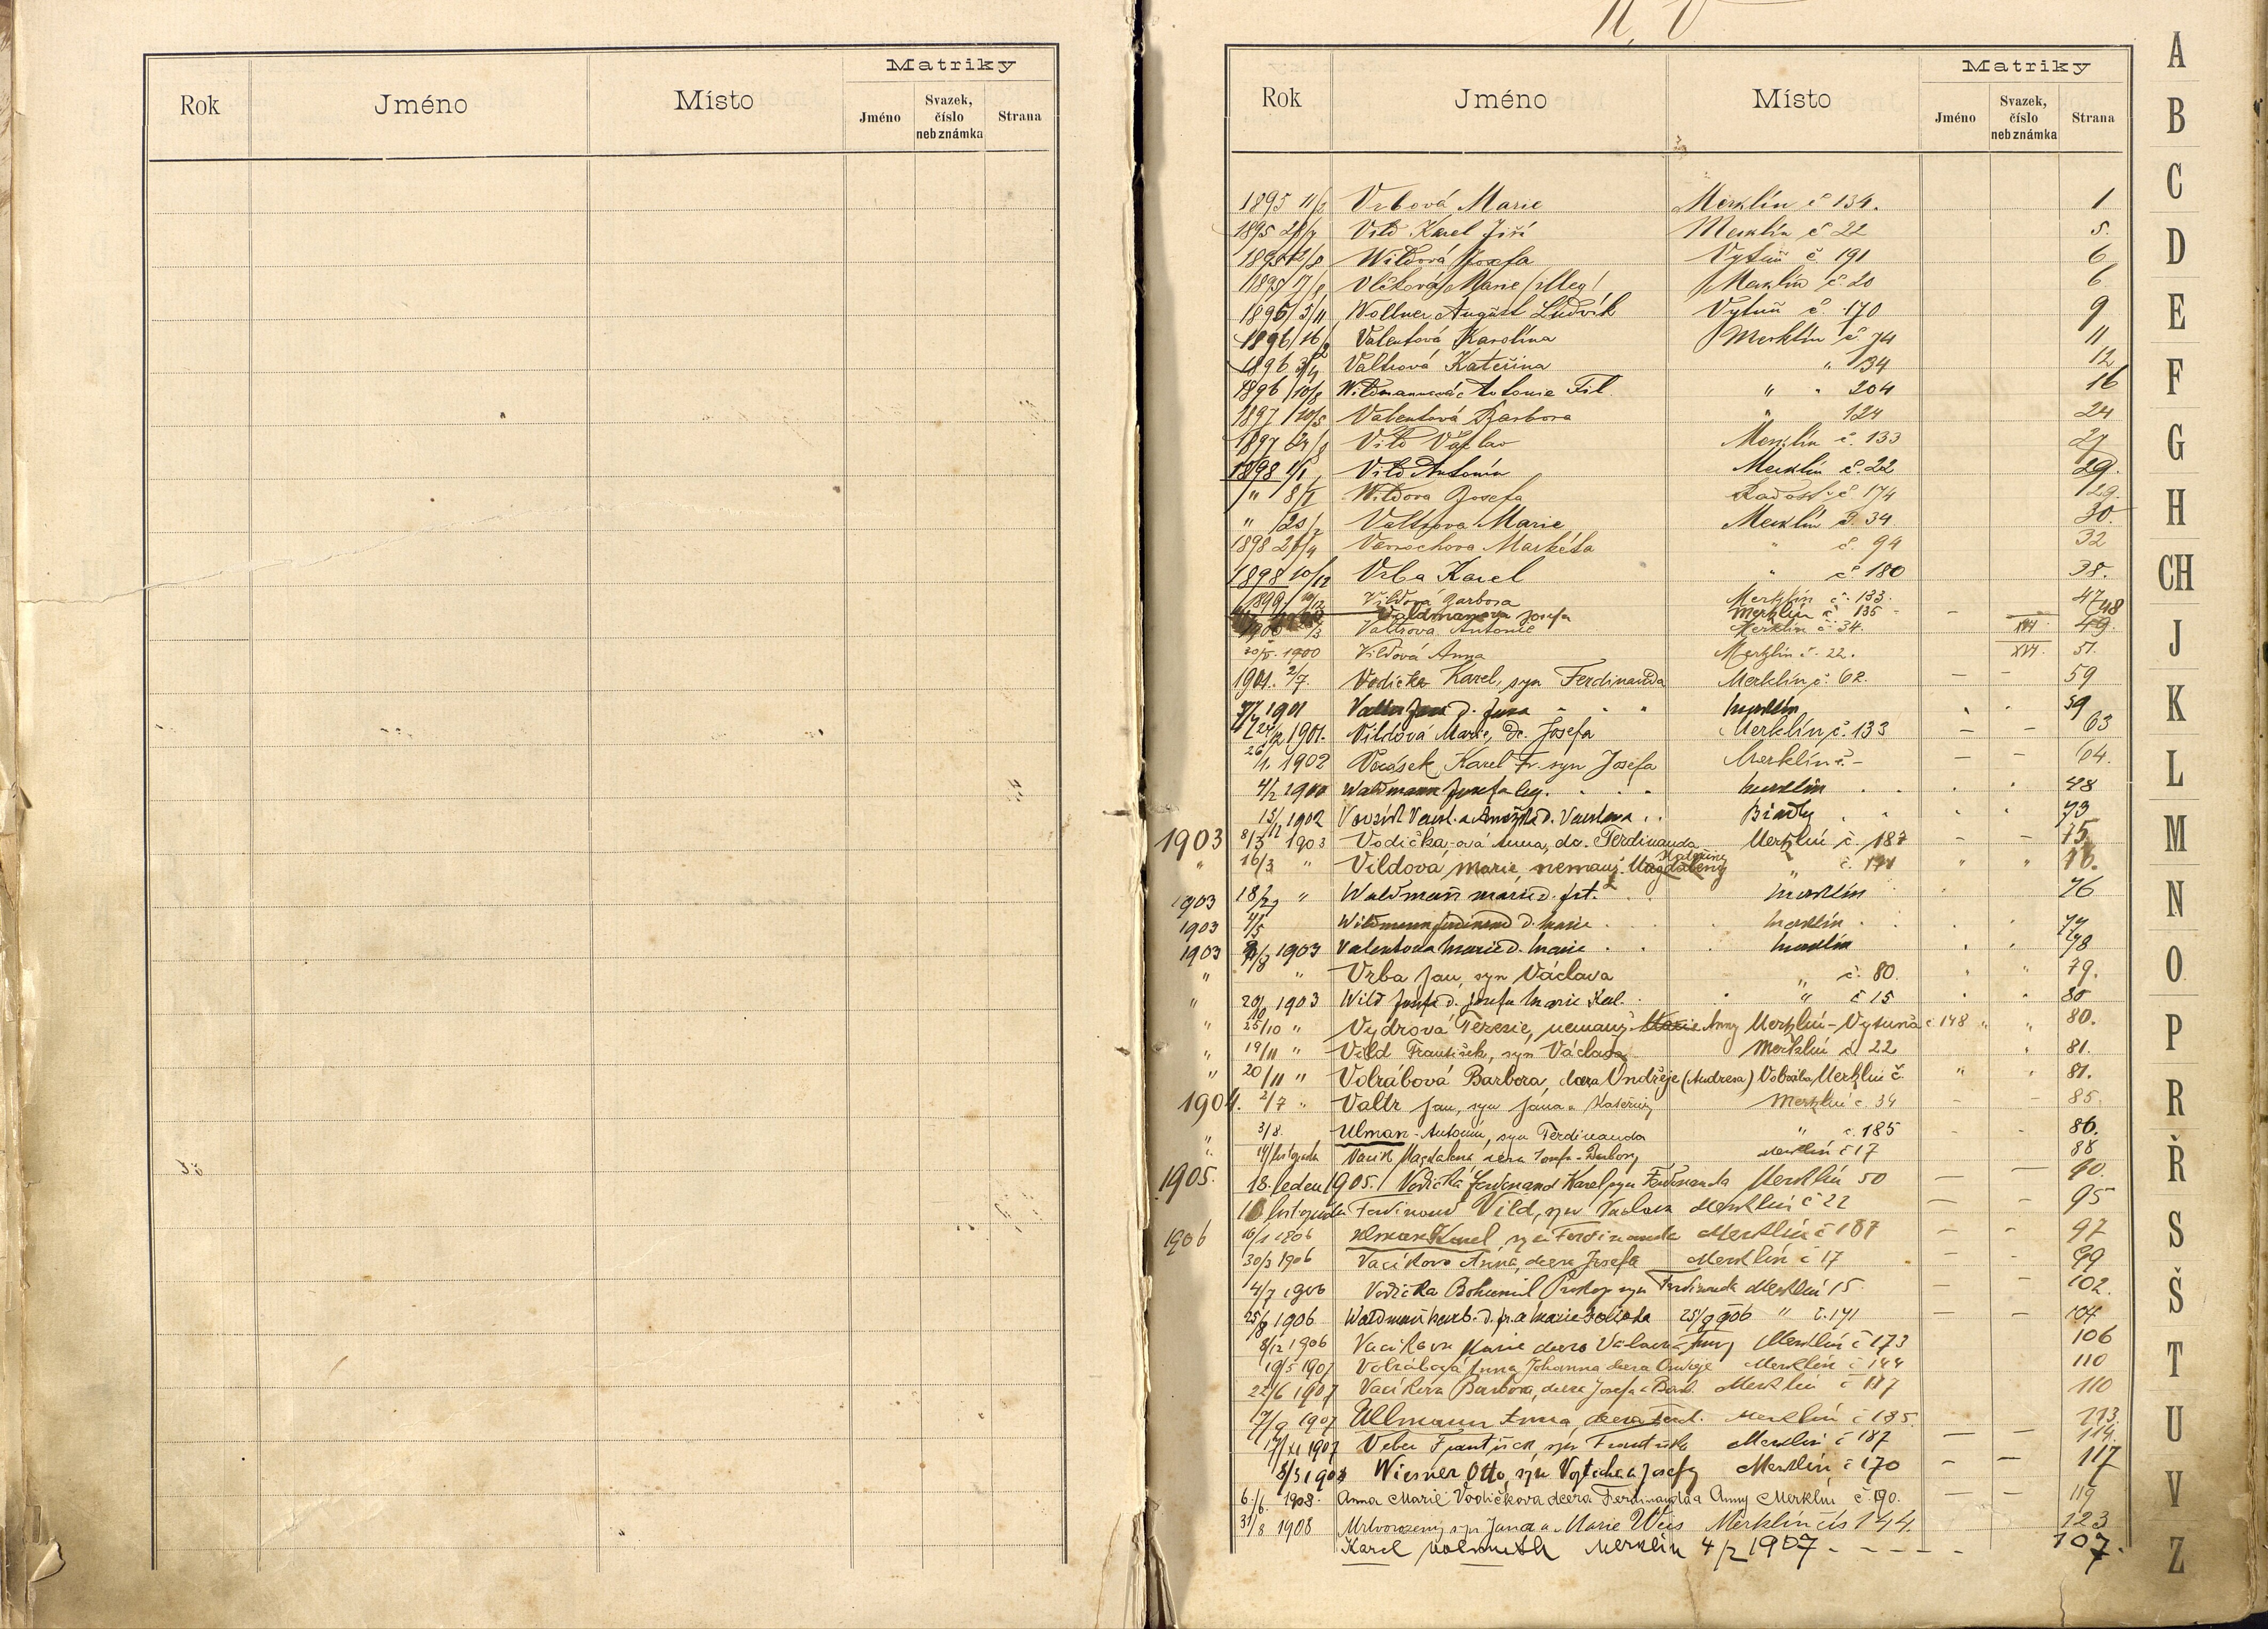 Matriky
Rok Jméno Místo Jméno Svazek, číslo neb známka Strana
U, V
Matriky
Rok Jméno Místo Jméno Svazek, číslo neb známka Strana
1895 11/2 Vrbová Marie Merklín č 134. 1
1895 Vild Karel Jiří Merklín č 22 5.
1895 Wildová Josefa Vytůň č. 191 6
1895 17/8 Vlčková Marie Merklín č. 20 6
1895 3/11 Wollner August Ludvík Vytuň č. 170 9
1896/16/2 Valentová Karolína Merklín č 74 11
1896 3/4 Valtrová Kateřina " 134 12
1896/10/8 Antonie Fil. " " 204 16
1897/20/5 Valentová Barbora " 124 24
1897 24/8 Vild Václav Merklín č. 133 27
1898 1/1 Vild Antonín Merklín č. 22 29.
" 8/1 Wildova Josefa č 174 29.
" 20/2 Valtrova Marie Merklín č. 34 30.
1898 Markéta " č. 94 32
1898 10/12 Vrba Karel " č 180 38.
1899 10/12 Vildová Barbora Merklín č. 133. 47
Waldmanova Josefa Merklín č 135 - - 48
1900 /3 Valtrova Antonie Merklín č. 34. XVI. 49.
20/5. 1900 Vildová Anna Merklín č. 22. XVI. 51.
1901. 2/7. Vodička Karel, syn Ferdinanda Merklín č. 62. — — 59
1901 Merklín 59
1901. Vildová Marie, dc. Josefa Merklín č. 133 — — 63
26/1. 1902 Karel Fr. syn Josefa Merklín č. - — — 64.
4/2 1900 Waldmann Josefa Merklín 48
15/11 1902 Biadly 73
1903 8/3 1903 Vodička-ová Anna, dc. Ferdinanda Merklín č. 187 - - 75.
" 16/3 " Vildová Marie, nemanž. Magdaleny Kateřiny " č. 191 " " 76.
1903 18/ " Waldman Marie d. Merklín 76
1903 4/5 Wildmann Ferdinand d. Marie Merklín 77
1903 1903 Valentova Marie d. Marie Merklín 78
" /8 " Vrba Jan, syn Václava " č. 80. " " 79.
" 20/10 1903 Wild Josef d. Josefa Marie " č 15 80
" 25/10 " Vydrová Terezie, nemanž. Marie Anny Merklín-Vytuňa č 148 " " 80.
" 19/11 " Vild František, syn Václava Merklín č. 22 " 81.
" 20/11 " Volrábová Barbora, dcera Ondřeje (Andresa) Volrába Merklín č. " " 81.
1904. 2/7 " Valtr Jan, syn Jána a Kateřiny Merklín č. 34 - - 85.
" 3/8. Ulman Antonín, syn Ferdinanda " č. 185 - - 86.
" listopada Vacík Magdalena dcera Josefa Barbory Merklín č 17 88
1905. 18. leden 1905. Vodička Ferdinand Karel syn Ferdinanda Merklín 50 — — 90.
listopada Ferdinand Vild, syn Václava Merklín č 22 — — 95
1906 16/1 1906 Ulman Karel, syn Ferdinanda Merklín č 187 — - 97
30/3 1906 Vacíkova Anna, dcera Josefa Merklín č 17 — - 99
4/7 1906 Vodička Bohumil Prokop syn Ferdinanda Merklín 15 — - 102.
25/8 1906 " č. 171 — — 104
8/12 1906 Vacikova Marie dcera Václava Anny Merklín č 173 106
19/5 1907 Volrábová Anna Johanna dcera Ondřeje Merklín č 144 110
22/6 1907 Vacíkova Barbora, dcera Josefa a Barb. Merklín č 117 110
17/9 1907 Ullmann Anna dcera Ferd. Merklín č 185. 113.
17/XI 1907 Veber František, syn Františka Merklín č 187 — — 114.
8/3 1908 Wiesner Otto, syn Vojtěcha a Josefy Merklín č 170 — — 117
6./6. 1908. Anna Marie Vodičkova dcera Ferdinanda a Anny Merklín č. 190. 119
31/8 1908 Mrtvorozený syn Jana a Marie Weis Merklín čís 144. 123
Karel Merklín 4/2 1907 - - - - - 107.
A
B
C
D
E
F
G
H
CH
J
K
L
M
N
O
P
R
Ř
S
Š
T
U
V
Z